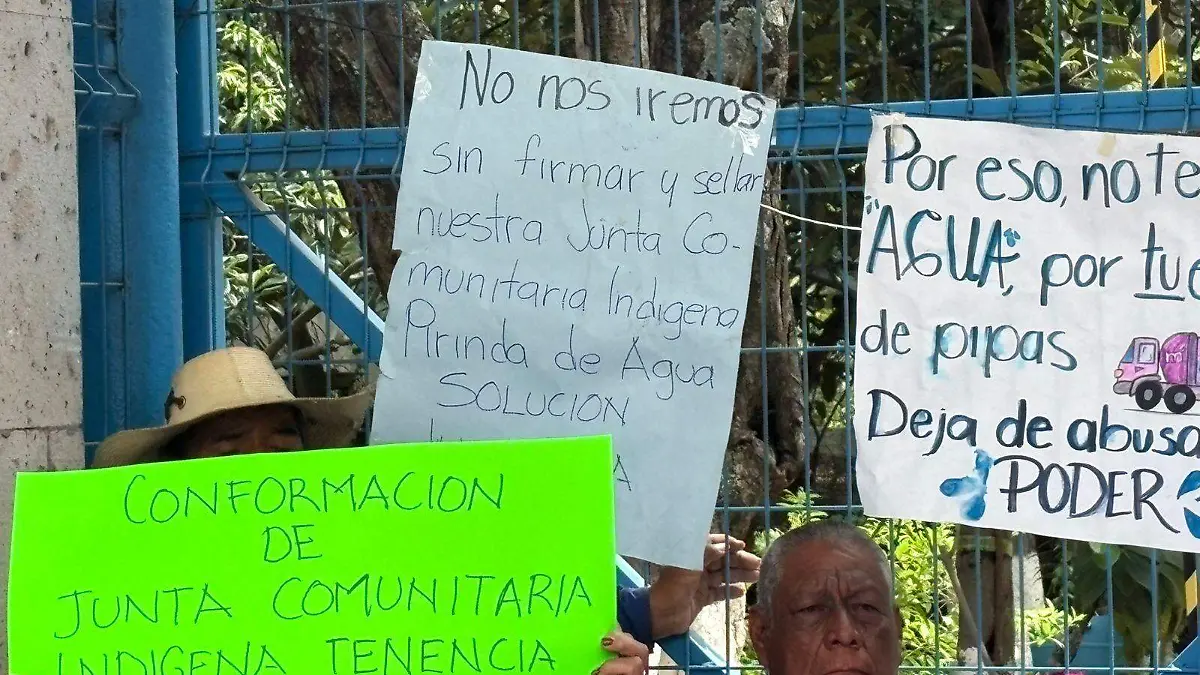 No nos iremos
sin firmar y sellar
nuestra Junta Co-
munitaria Indigena
Pirinda de Agua
SOLUCION
Por eso, no te
"AGUA", por tu
de pipas
Deja de abusa
PODER
CONFORMACION
DE
JUNTA COMUNITARIA
INDIGENA TENENCIA